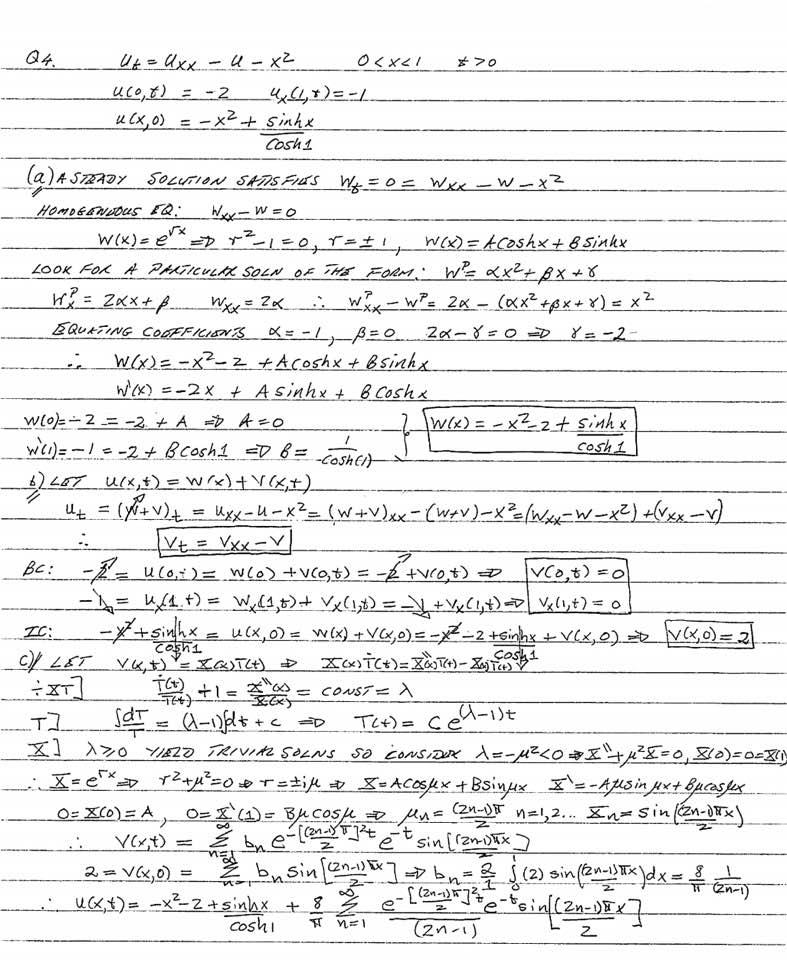 Q4. u_t = u_xx - u - x² 0 < x < 1 t > 0
u(0,t) = -2 u_x(1,t) = -1
u(x,0) = -x² + sinhx/cosh1
(a) A STEADY SOLUTION SATISFIES W_t = 0 = W_xx - W - x²
HOMOGENEOUS EQ: W_xx - W = 0
W(x) = e^{rx} ⇒ r² - 1 = 0, r = ±1, W(x) = A coshx + B sinhx
LOOK FOR A PARTICULAR SOLN OF THE FORM: W^P = αx² + βx + γ
W_x^P = 2αx + β W_xx = 2α ∴ W_xx^P - W^P = 2α - (αx² + βx + γ) = x²
EQUATING COEFFICIENTS α = -1, β = 0 2α - γ = 0 ⇒ γ = -2
∴ W(x) = -x² - 2 + A coshx + B sinhx
W'(x) = -2x + A sinhx + B coshx
W(0) = -2 = -2 + A ⇒ A = 0 } W(x) = -x² - 2 + sinhx/cosh1
W'(1) = -1 = -2 + B cosh1 ⇒ B = 1/cosh(1)
b) LET u(x,t) = W(x) + V(x,t)
u_t = (W+V)_t = u_xx - u - x² = (W+V)_xx - (W+V) - x² = (W_xx - W - x²) + (V_xx - V)
∴ V_t = V_xx - V
BC: -2 = u(0,t) = W(0) + V(0,t) = -2 + V(0,t) ⇒ V(0,t) = 0
-1 = u_x(1,t) = W_x(1,t) + V_x(1,t) = -1 + V_x(1,t) ⇒ V_x(1,t) = 0
IC: -x² + sinhx/cosh1 = u(x,0) = W(x) + V(x,0) = -x² - 2 + sinhx/cosh1 + V(x,0) ⇒ V(x,0) = 2
c) LET V(x,t) = X(x)T(t) ⇒ X(x)Ṫ(t) = X''(x)T(t) - X(x)T(t)
÷XT] Ṫ(t)/T(t) + 1 = X''(x)/X(x) = CONST = λ
T] ∫dT/T = (λ-1)∫dt + c ⇒ T(t) = C e^{(λ-1)t}
X] λ ≥ 0 YIELD TRIVIAL SOLNS SO CONSIDER λ = -μ² < 0 ⇒ X'' + μ²X = 0, X(0) = 0 = X'(1)
∴ X = e^{rx} ⇒ r² + μ² = 0 ⇒ r = ±iμ ⇒ X = A cosμx + B sinμx X' = -Aμ sinμx + Bμ cosμx
0 = X(0) = A, 0 = X'(1) = Bμ cosμ ⇒ μ_n = (2n-1)π/2 n = 1,2... X_n = sin((2n-1)πx/2)
∴ V(x,t) = ∑_{n=1}^∞ b_n e^{-[(2n-1)π/2]²t} e^{-t} sin[(2n-1)πx/2]
2 = V(x,0) = ∑_{n=1}^∞ b_n sin[(2n-1)πx/2] ⇒ b_n = 2/1 ∫_0^1 (2) sin((2n-1)πx/2)dx = 8/π 1/(2n-1)
∴ u(x,t) = -x² - 2 + sinhx/cosh1 + 8/π ∑_{n=1}^∞ e^{-[(2n-1)π/2]²t} e^{-t}/(2n-1) sin[(2n-1)πx/2]